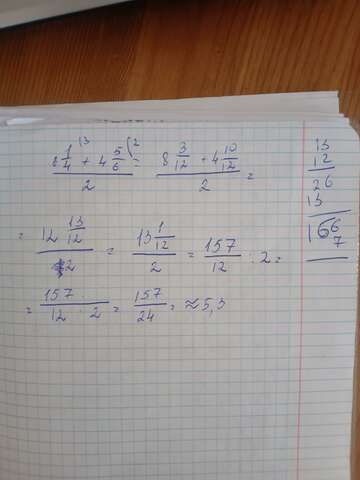 (8 1/4 + 4 5/6)/2 = (8 3/12 + 4 10/12)/2 =
= (12 13/12)/2 = (13 1/12)/2 = 157/12 : 2 =
= 157/(12 · 2) = 157/24 = ≈ 5,5
13
12
26
13
166
7